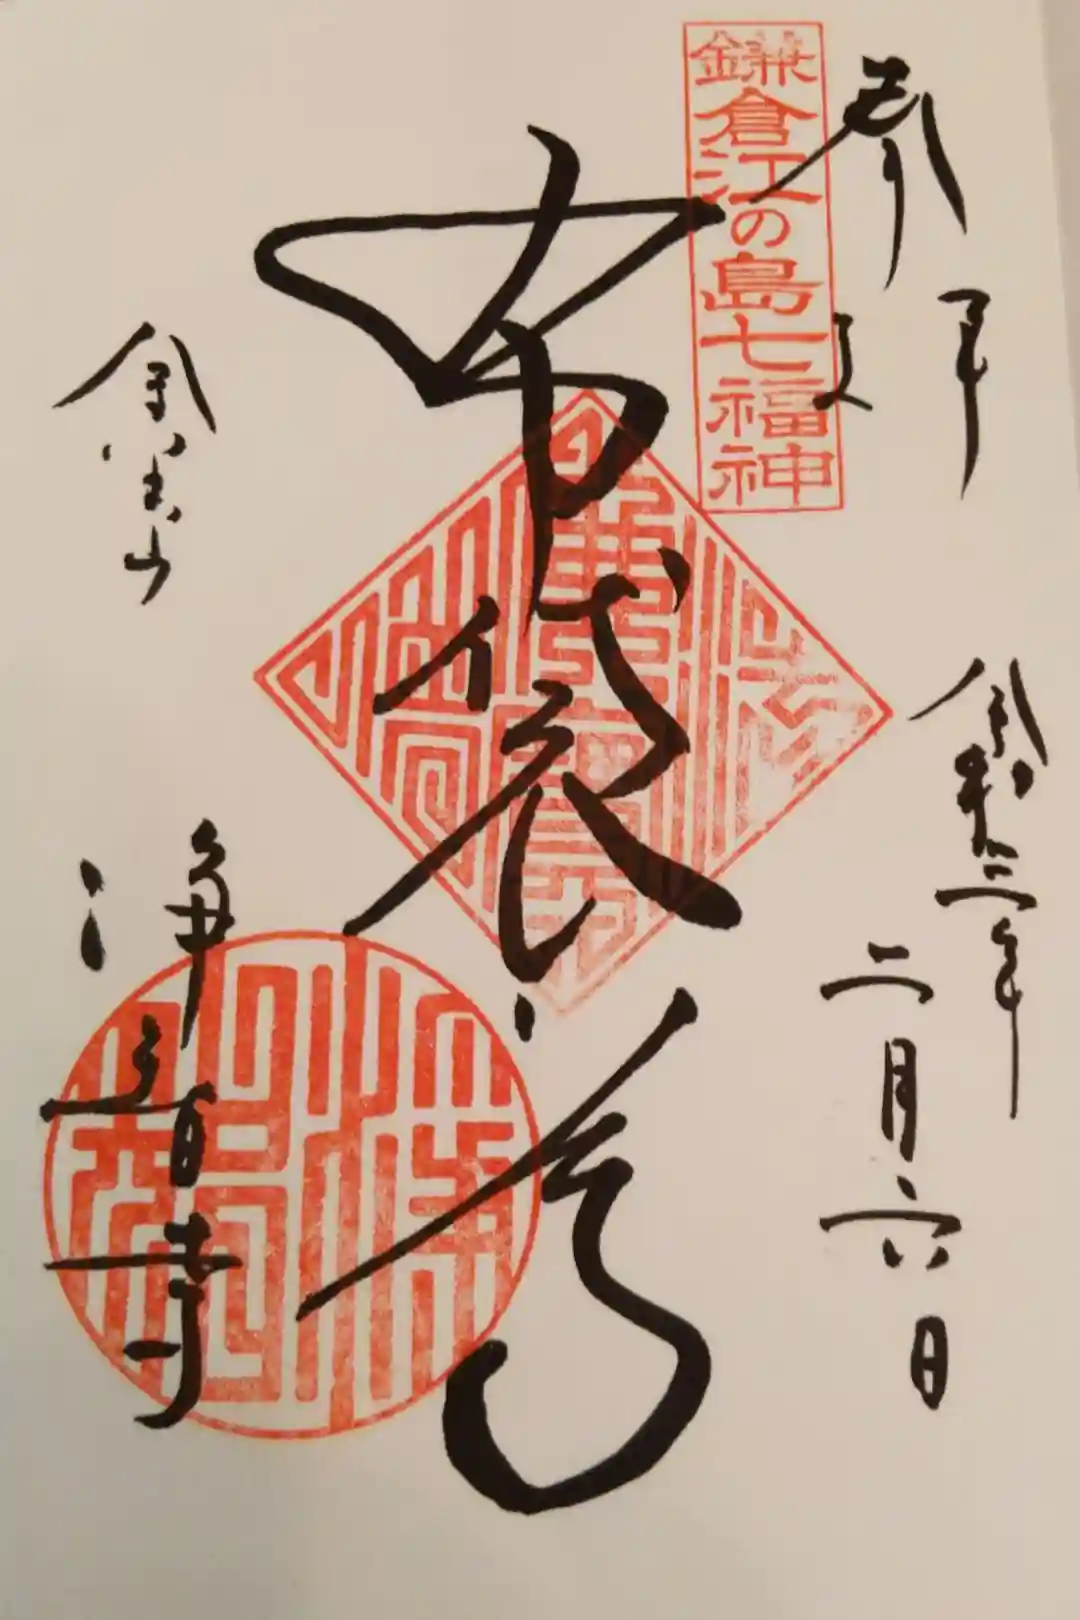 奉拝
令和三年
二月六日
鎌倉江の島七福神
布袋尊
金宝山
浄智寺